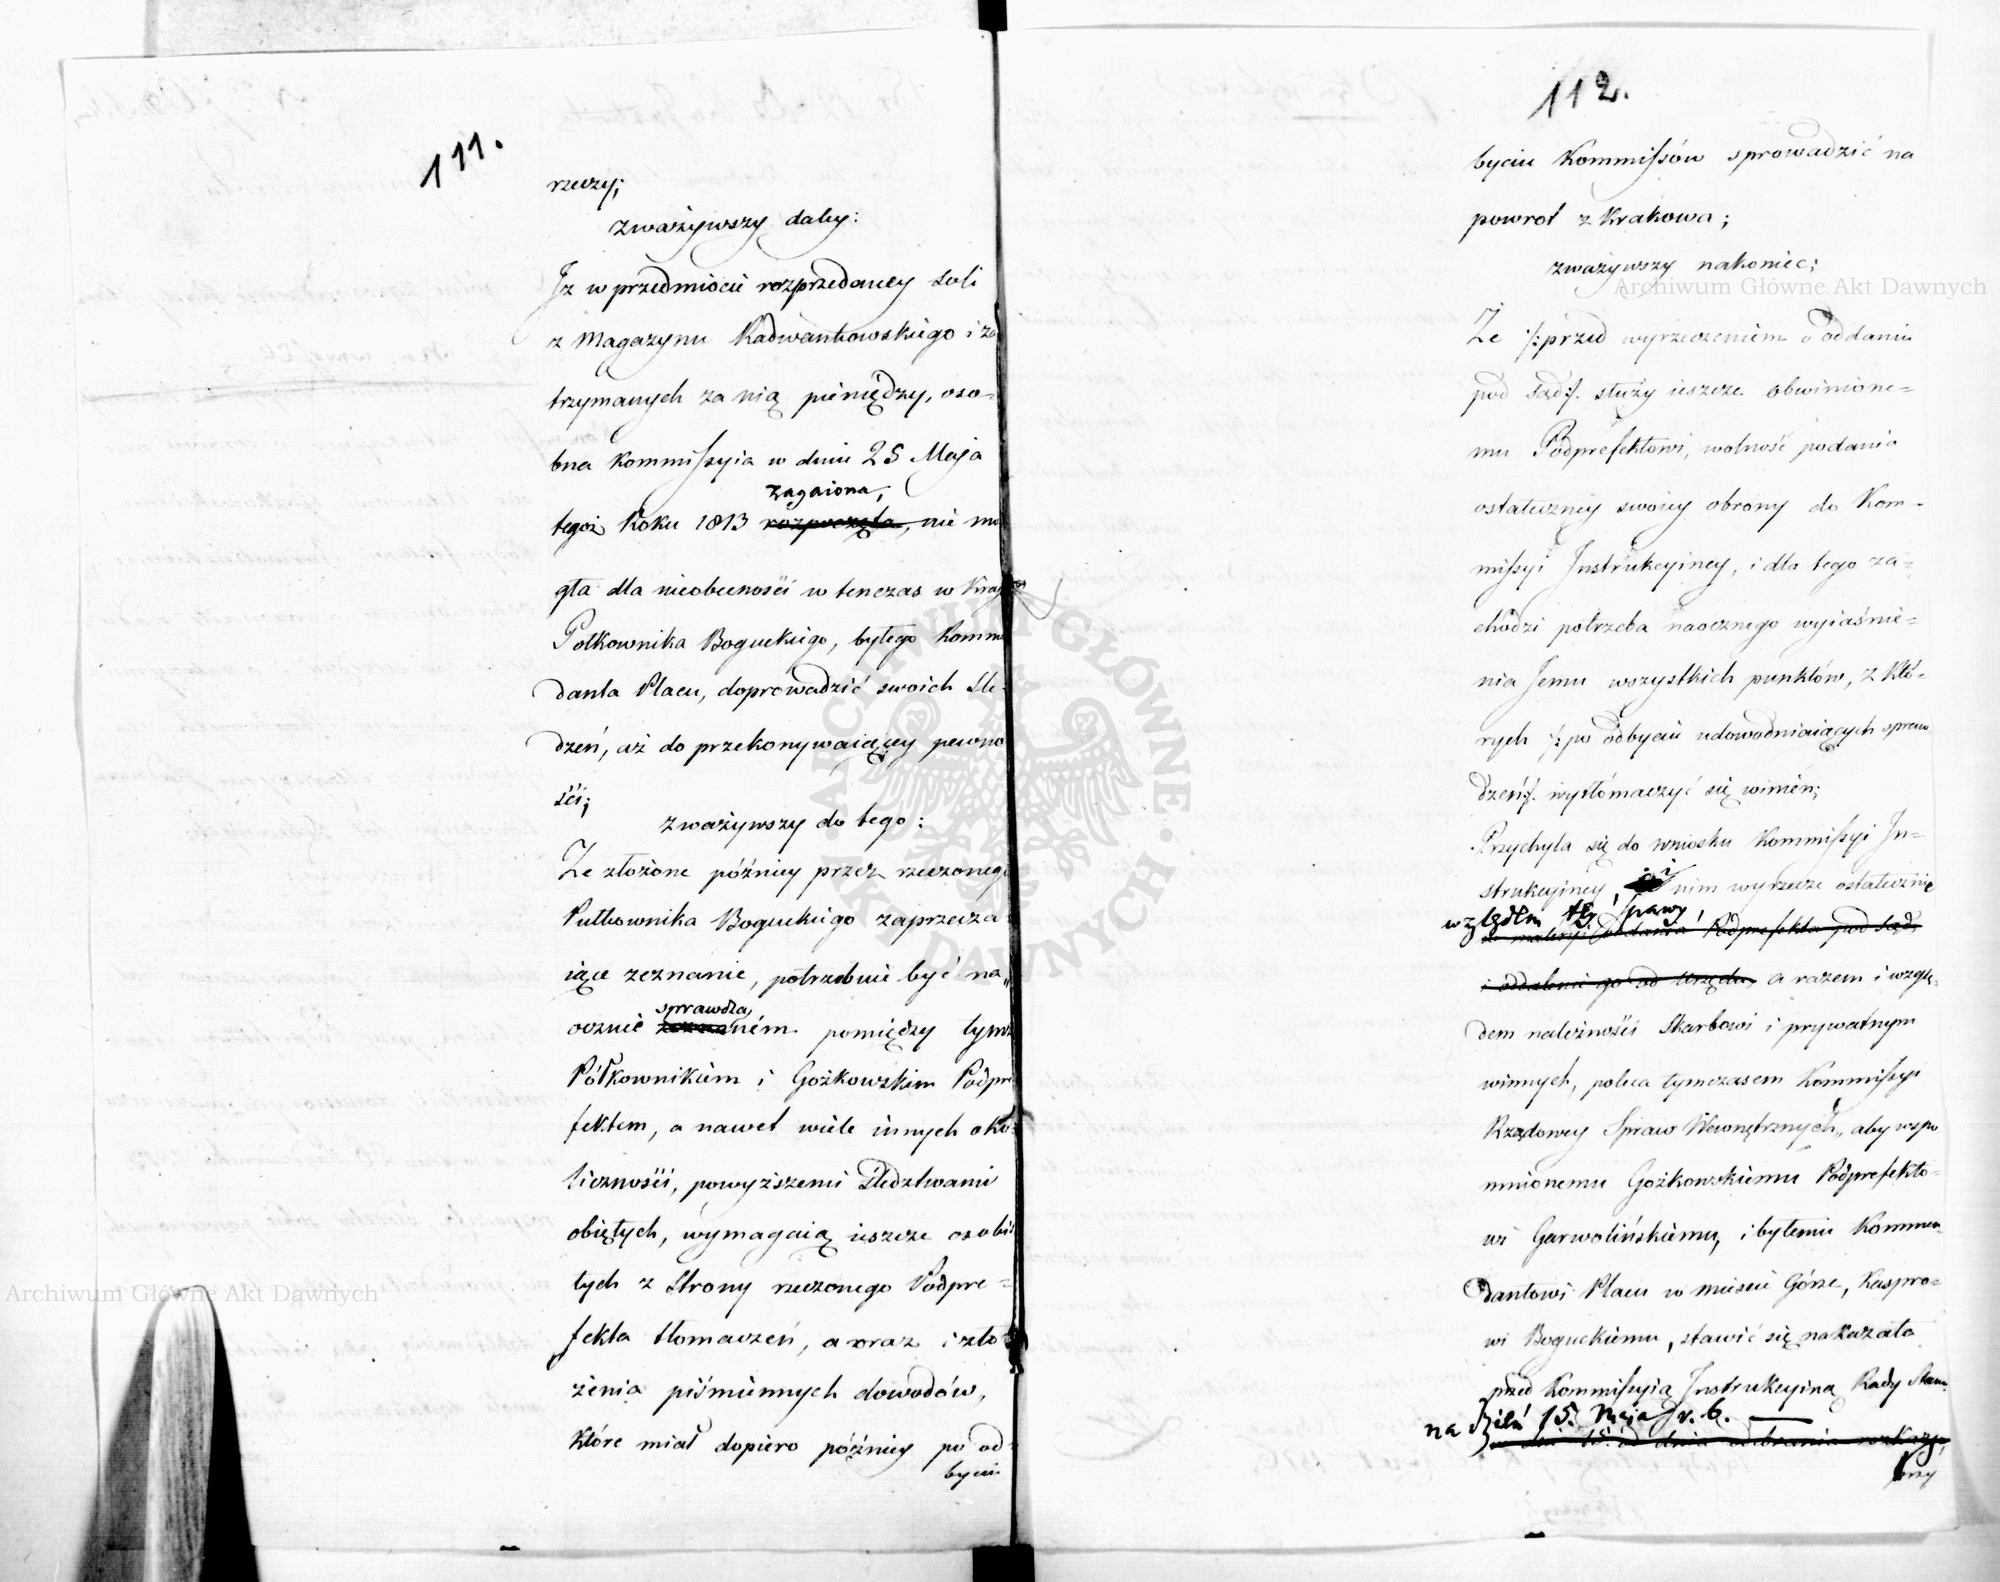 111.
rzeczy;
zważywszy daley:
Iz w przedmiocie rozprzedaney soli
z Magazynu Radwankowskiego i za
trzymanych za nią pieniędzy, oso-
bna Kommissyia w dniu 25 Maja
zagaiona,
tegoż Roku 1813 rozpoczęta, nie mo
gła dla nieobecności w tenczas w Kraju
Połkownika Boguckiego, byłego Komme
danta Placu, doprowadzić swoich śle-
dzeń, aż do przekonywaiącey pewno
ści;
zważywszy do tego:
Ze złożone późniey przez rzeczonego
Pułkownika Boguckiego zaprzecza
iące zeznanie, potrzebuie być na,,
sprawdza,
ocznie ném pomiędzy tymże
Półkownikiem i Gożkowskim Podpre
fektem, a nawet wiele innych oko-
liczności, powyższemi Śledztwami
obiętych, wymagaią ieszcze osobis
tych z Strony rzeczonego Podpre-
fekta tłomaczeń, a oraz i zło
żenia piśmiennych dowodów,
które miał dopiero późniey po od-
byciu
112.
byciu Kommissów sprowadzić na
powrot z Krakowa;
zważywszy nakoniec;
Ze /:przed wyrzeczeniem o oddaniu
pod Sąd:/. służy ieszcze obwinione-
mu Podprefektowi, wolność podania
ostateczney swoiey obrony do Kom-
missyi Instrukcyiney, i dla tego za-
chodzi potrzeba naocznego wyiaśnie-
nia Jemu wszystkich punktów, z któ-
rych /:po odbyciu udowodniaiących spraw
dzeń:/. wytłómaczyć się winien;
Przychyla się do wniosku Kommissyi In-
strukcyiney, i nim wyrzecze ostatecznie
względem tey sprawy,
w materyi oddania Podprefekta pod Sąd,
i oddalenie go od Urzędu, a razem i wzglę-
dem należności Skarbowi i prywatnym
winnych, poleca tymczasem Kommissyi
Rządowey Spraw Wewnętrznych, aby wspo
mnionemu Gożkowskiemu Podprefekto-
wi Garwolińskiemu, i byłemu Kommen
dantowi Placu w mieście Górze, Kaspro-
wi Boguckiemu, stawić się nakazała
przed Kommissyią Instrukcyiną Rady Stanu
na dzień 15. Maja r. b.
w dni 15. od dnia odebrania rozkazu,
przy
Archiwum Główne Akt Dawnych
Archiwum Główne Akt Dawnych
ARCHIWUM GŁÓWNE AKT DAWNYCH